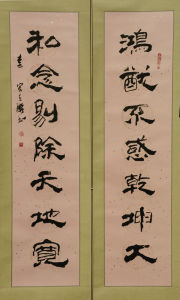 鴻猷不惑乾坤大
私念剔除天地寬